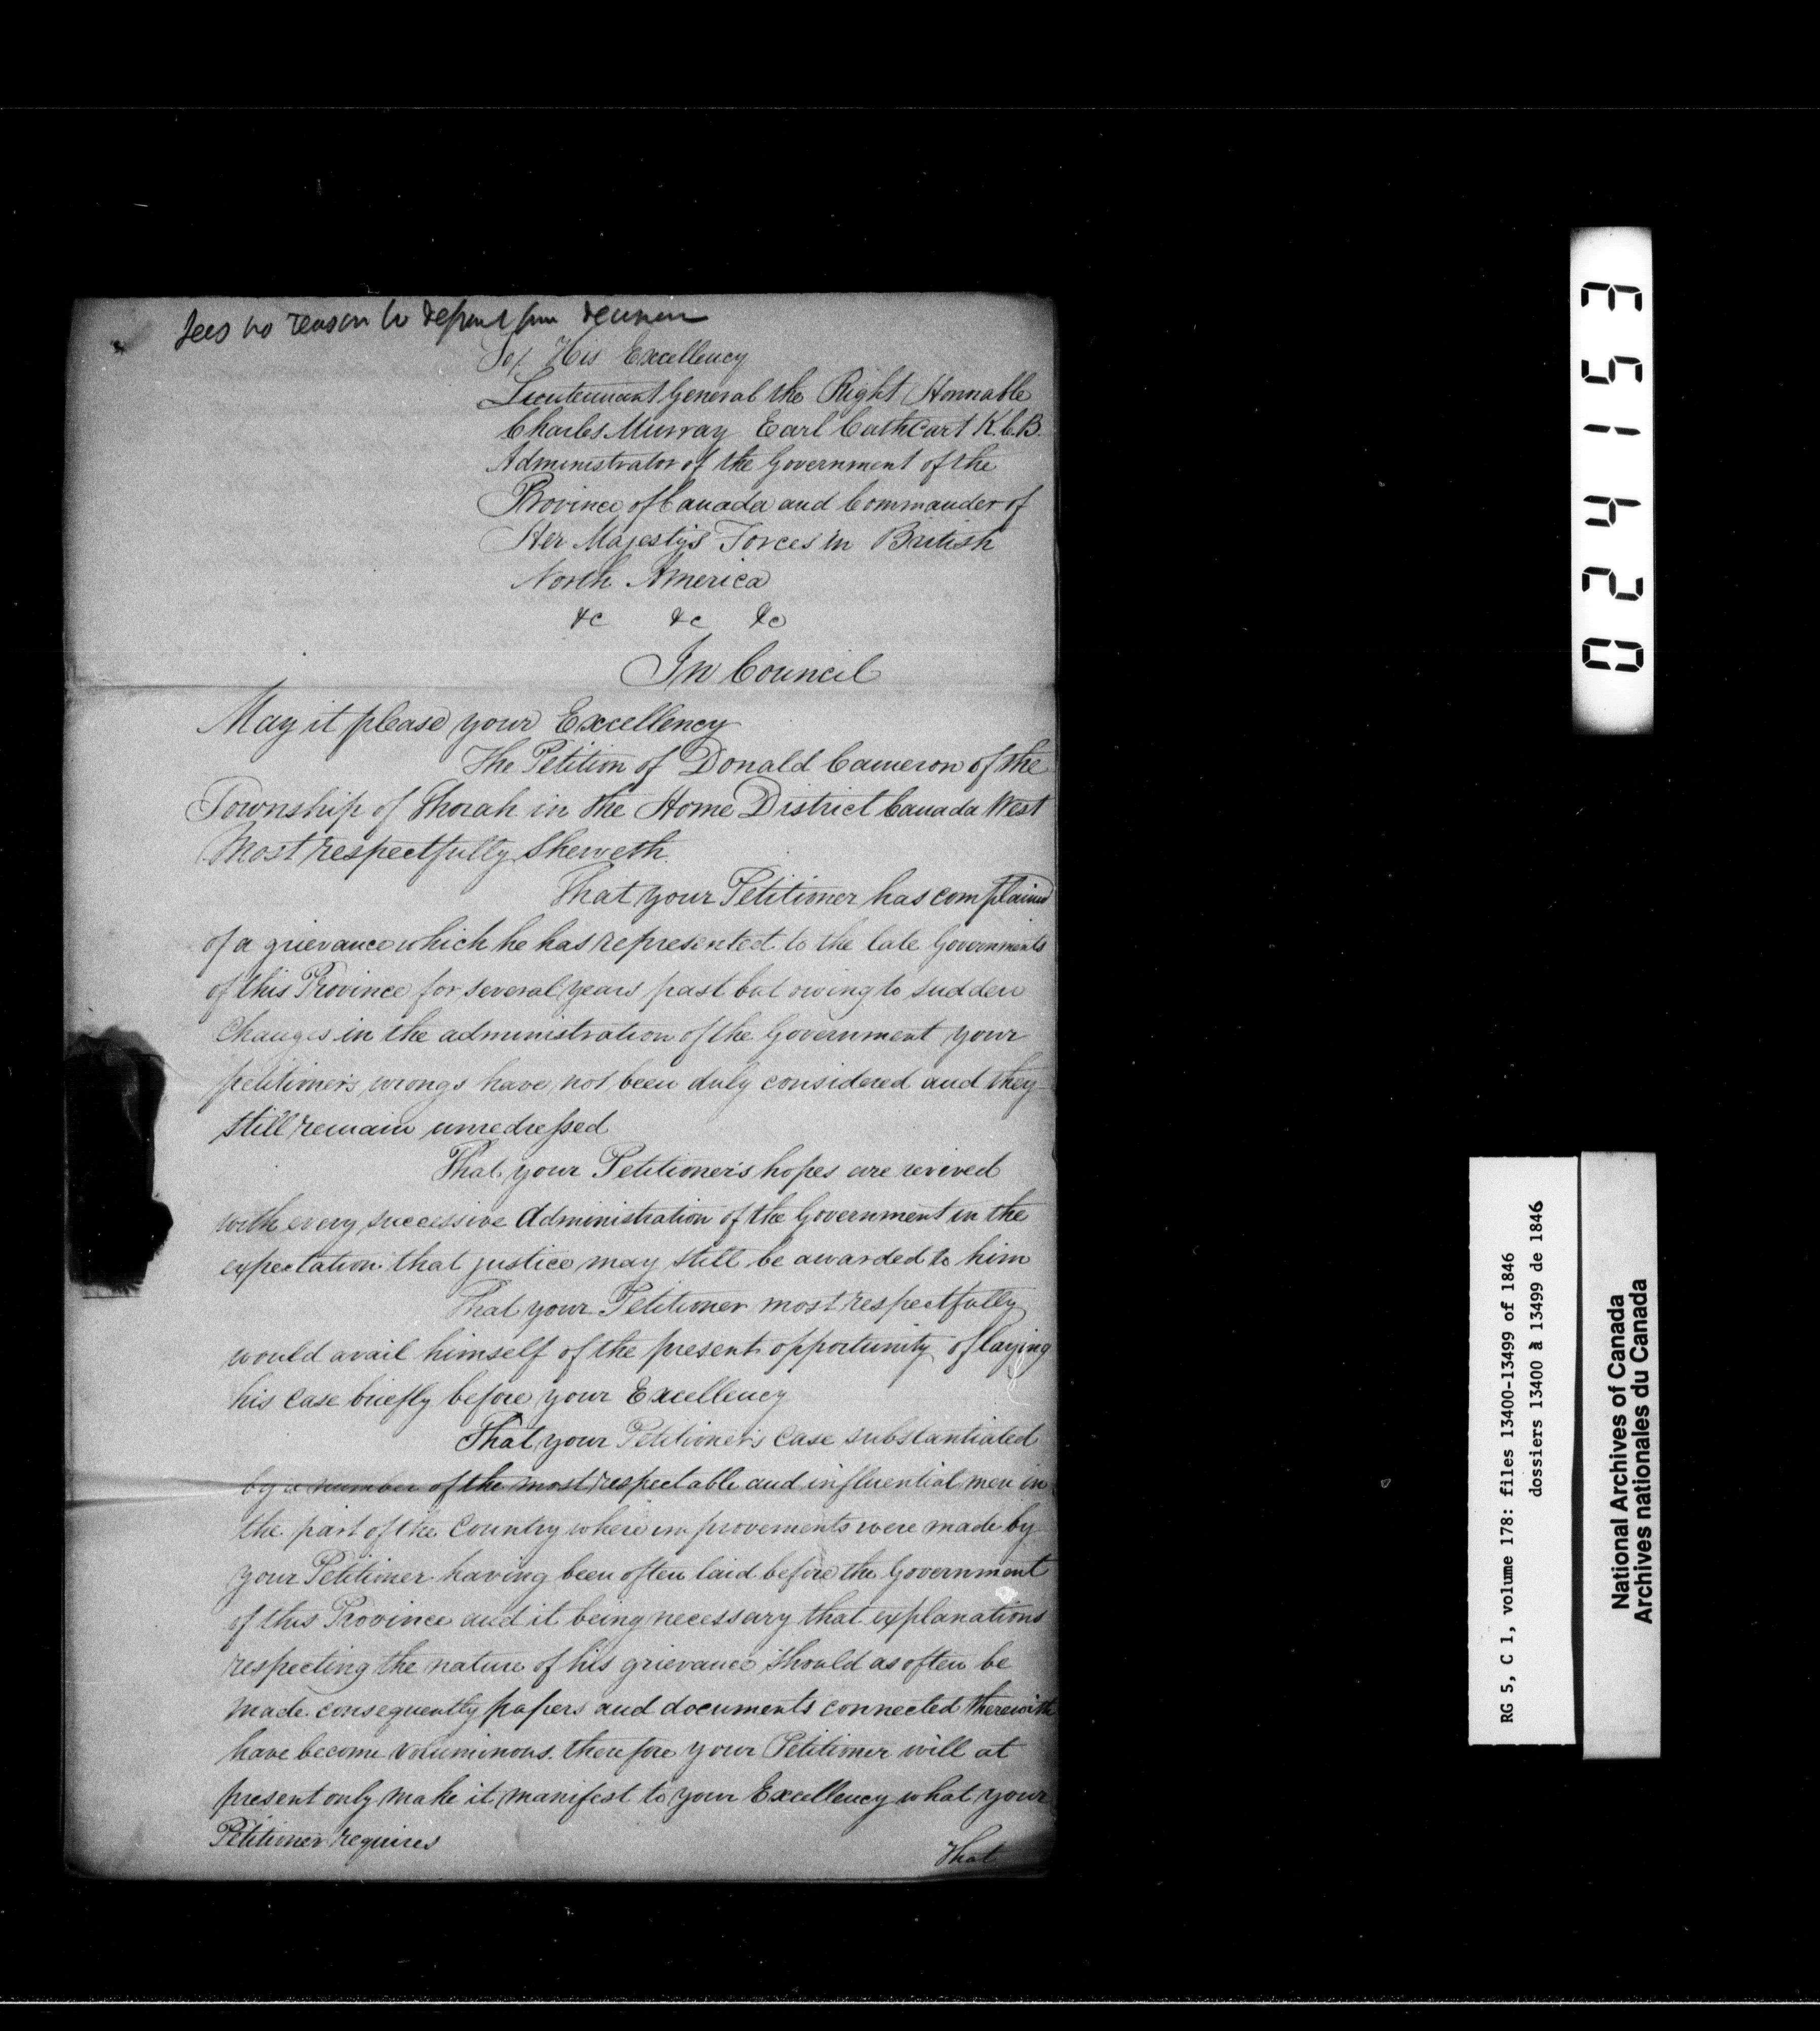 sees no reason to depart from decision
To/ His Excellency
Lieutennant General the Right Honnable
Charles Murray Earl CathCart K.C.B.
Administrator of the Government of the
Province of Canada and Commander of
Her Majesty's Forces in British
North America
&c &c &c
In Council
May it please your Excellency
The Petition of Donald Cameron of the
Township of Thorah in the Home District Canada West
Most respectfully Sheweth.
That your Petitioner has complained
of a grievance which he has represented to the late Governments
of this Province for several years past but owing to sudden
Changes in the administration of the Government your
petitioner's wrongs have not been duly considered and they
still remain unredressed
That your Petitioner's hopes are revived
with every successive Administration of the Government in the
expectation that justice may still be awarded to him
That your Petitioner most respectfully
would avail himself of the present opportunity of laying
his case briefly before your Excellency
That your Petitioner's case substantiated
by a number of the most respectable and influential men in
the part of the Country where improvements were made by
your Petitioner having been often laid before the Government
of this Province and it being necessary that explanations
respecting the nature of his grievance should as often be
made consequently papers and documents connected therewith
have become voluminous. therefore your Petitioner will at
present only make it manifest to your Excellency what your
Petitioner requires
That
024153
RG 5, C 1, volume 178: files 13400-13499 of 1846
dossiers 13400 à 13499 de 1846
National Archives of Canada
Archives nationales du Canada